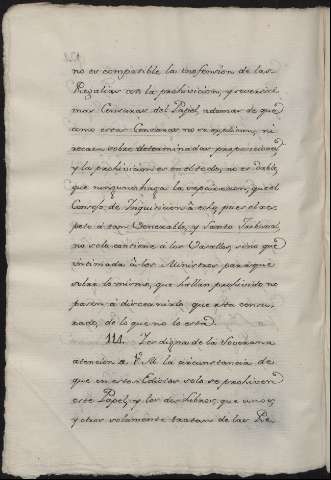 no es compatible la inofension de las
Regalias con la prohivicion, y severisi-
mas Censuras del Papel, ademas de que
como estas Censuras no se explican, ni
recaen sobre determinadas proposiciones
y la prohivicion es en el todo, no es dable,
que ninguno haga la separacion, que el
Consejo de Inquisicion â echo, pues el res-
peto á tan Venerable, y Santo Tribunal,
no solo contiene a los Vasallos, sino que
intimida â los Ministros para que
sobre lo mismo, que hallan prohivido no
pasen â discernir lo que esta censu-
rado, de lo que no lo está.
111. Es digna de la Soverana
atencion a V. M. la circunstancia de
que en estos Edictos solo se prohiven
este Papel, y los dos Libros, que unos,
y otros solamente tratan de las Re